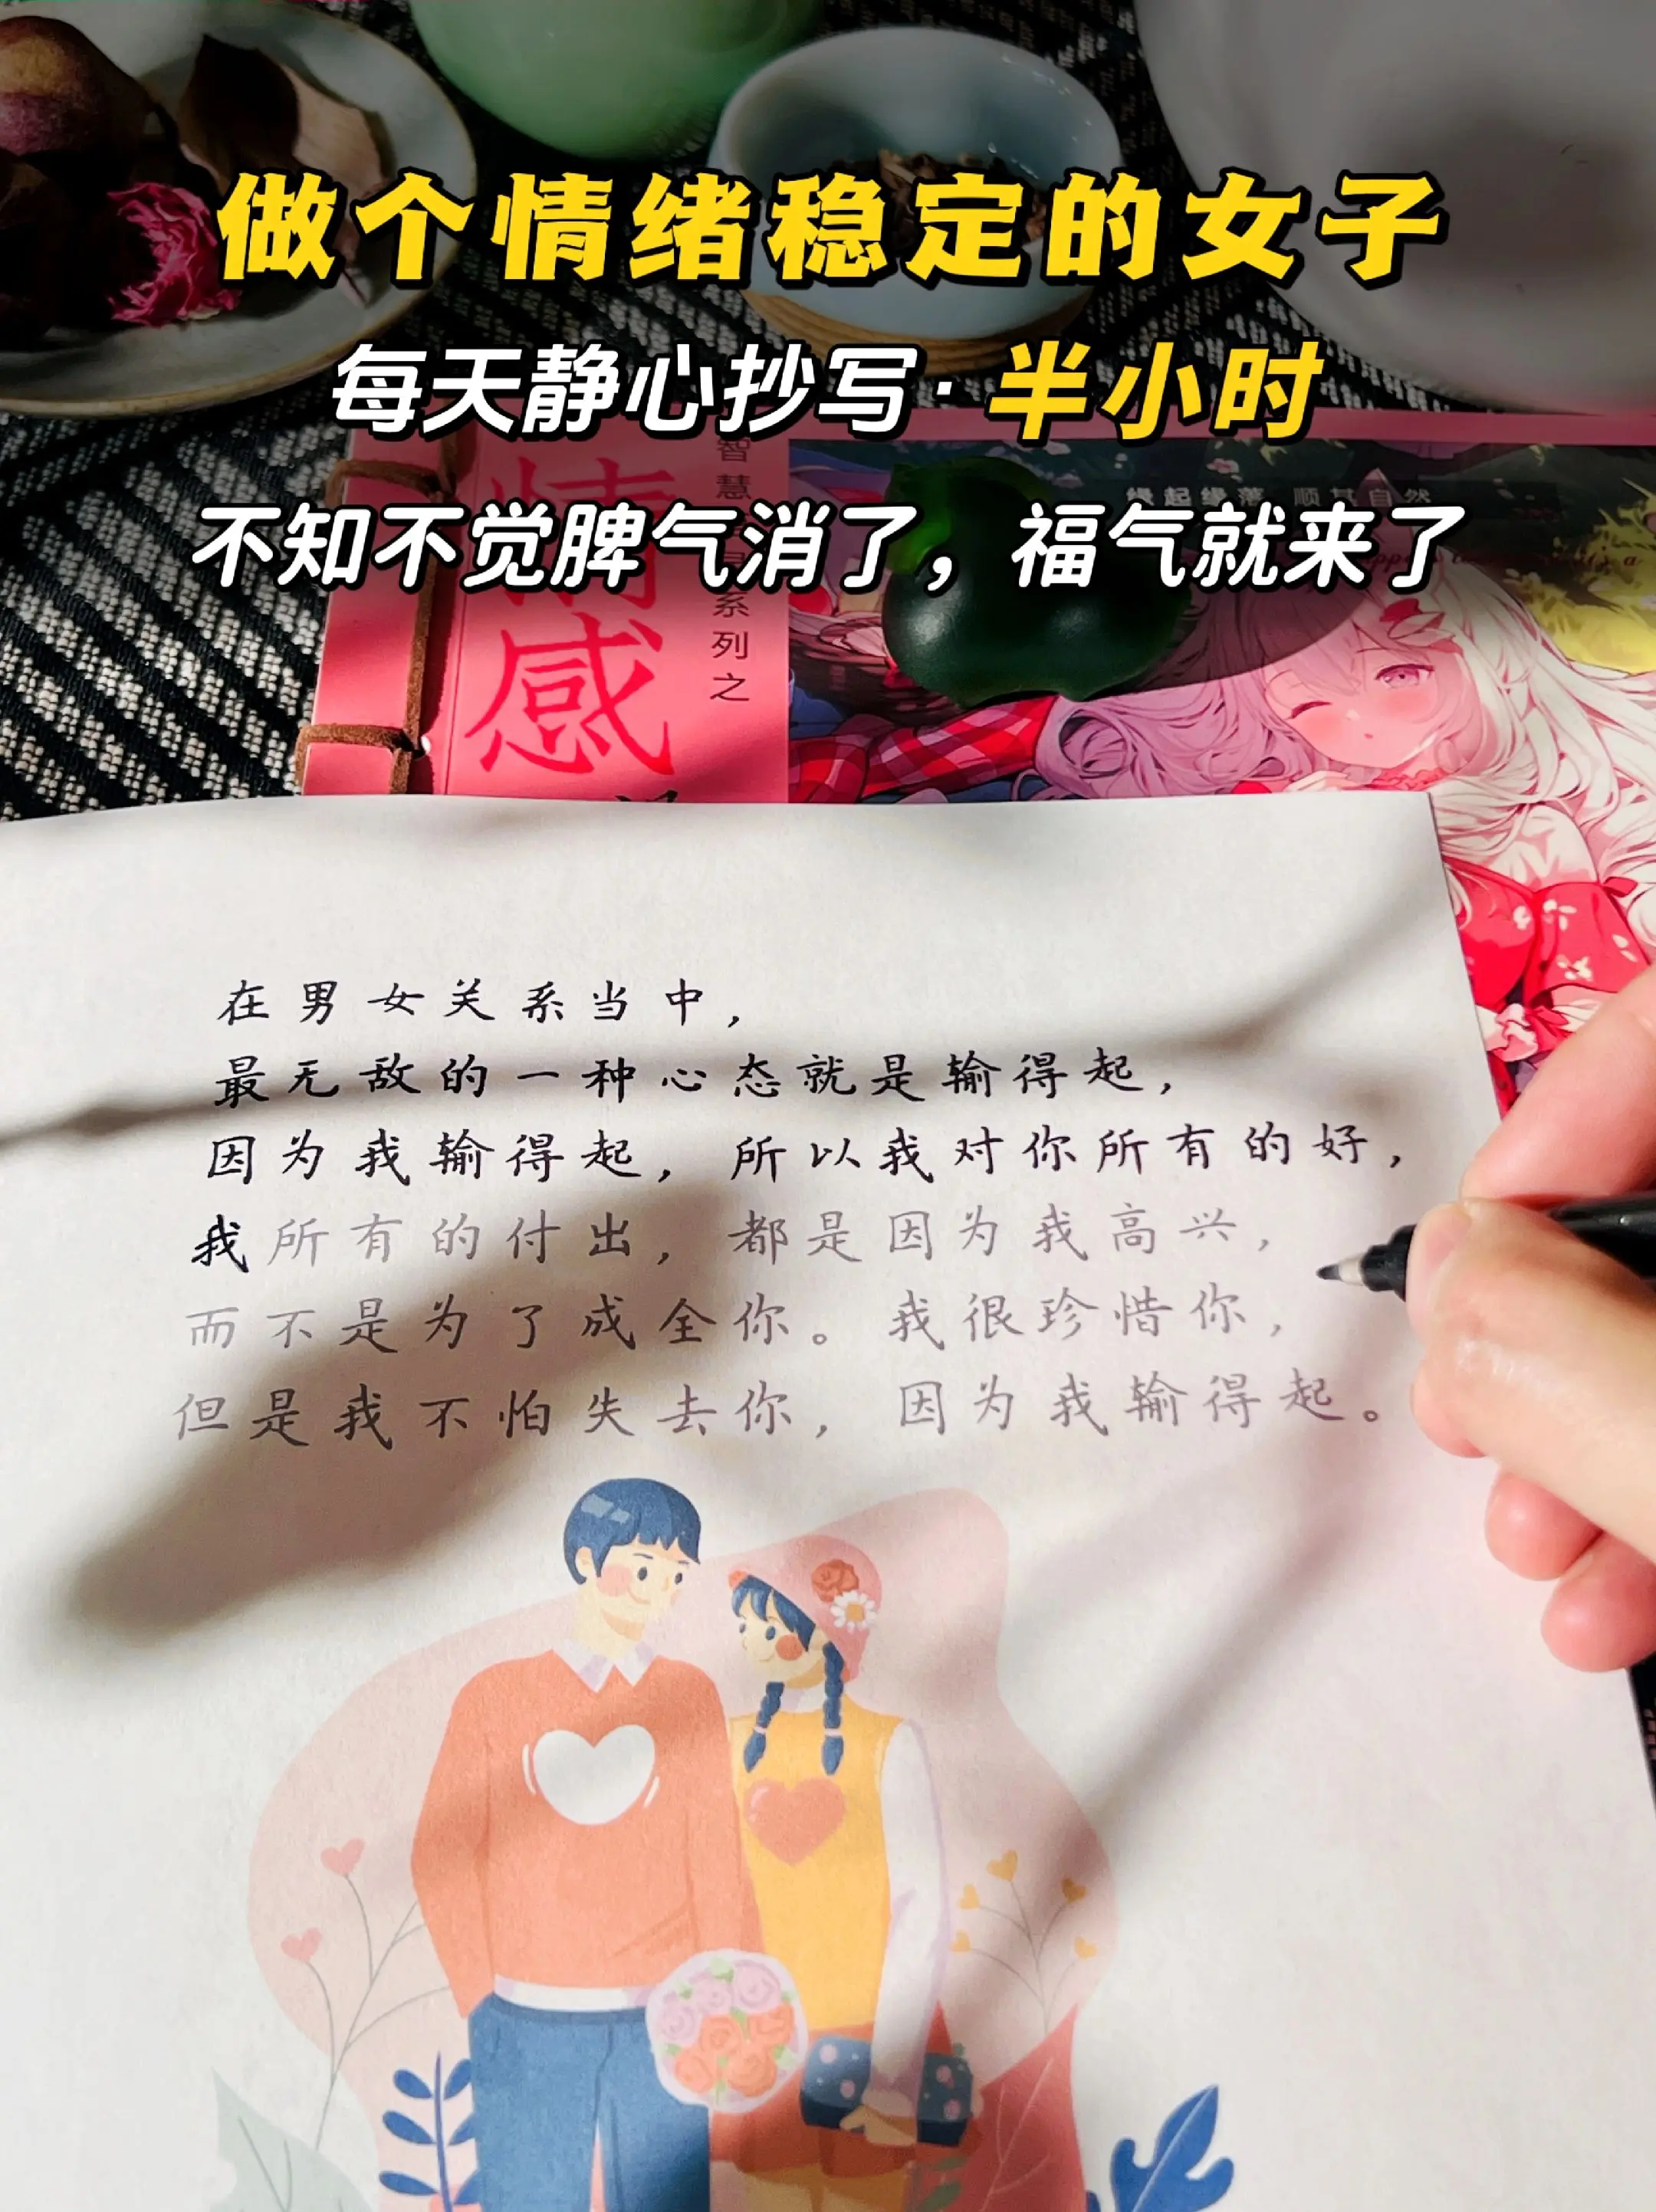 做个情绪稳定的女子
每天静心抄写·半小时
不知不觉脾气消了，福气就来了
情感
智慧
系列之
缘起缘落 顺其自然
在男女关系当中，
最无敌的一种心态就是输得起，
因为我输得起，所以我对你所有的好，
我所有的付出，都是因为我高兴，
而不是为了成全你。我很珍惜你，
但是我不怕失去你，因为我输得起。